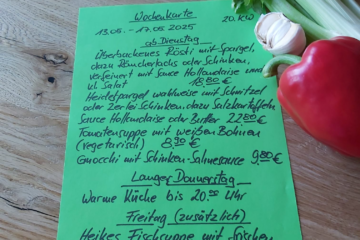 Wochenkarte
20. KW
13.05. - 17.05 2025
ab Dienstag
Überbackenes Rösti mit Spargel,
dazu Räucherlachs oder Schinken,
verfeinert mit Sauce Hollandaise und
kl. Salat 18,80 €
Heidespargel wahlweise mit Schnitzel
oder Zerlei Schinken, dazu Salzkartoffeln
Sauce Hollandaise oder Butter 22,80 €
Tomatensuppe mit weißen Bohnen
(vegetarisch) 8,90 €
Gnocchi mit Schinken-Sahnesauce 9,80 €
Langer Donnerstag
Warme Küche bis 20.00 Uhr
Freitag (zusätzlich)
Heikes Fischsuppe mit frischen